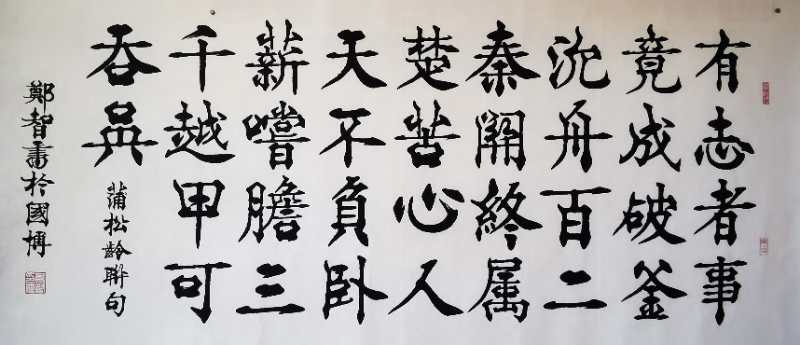 有志者事
竟成破釜
沉舟百二
秦關終属
楚苦心人
天不負卧
薪嚐膽三
千越甲可
吞吳
蒲松齡聯句
鄭智書於國博